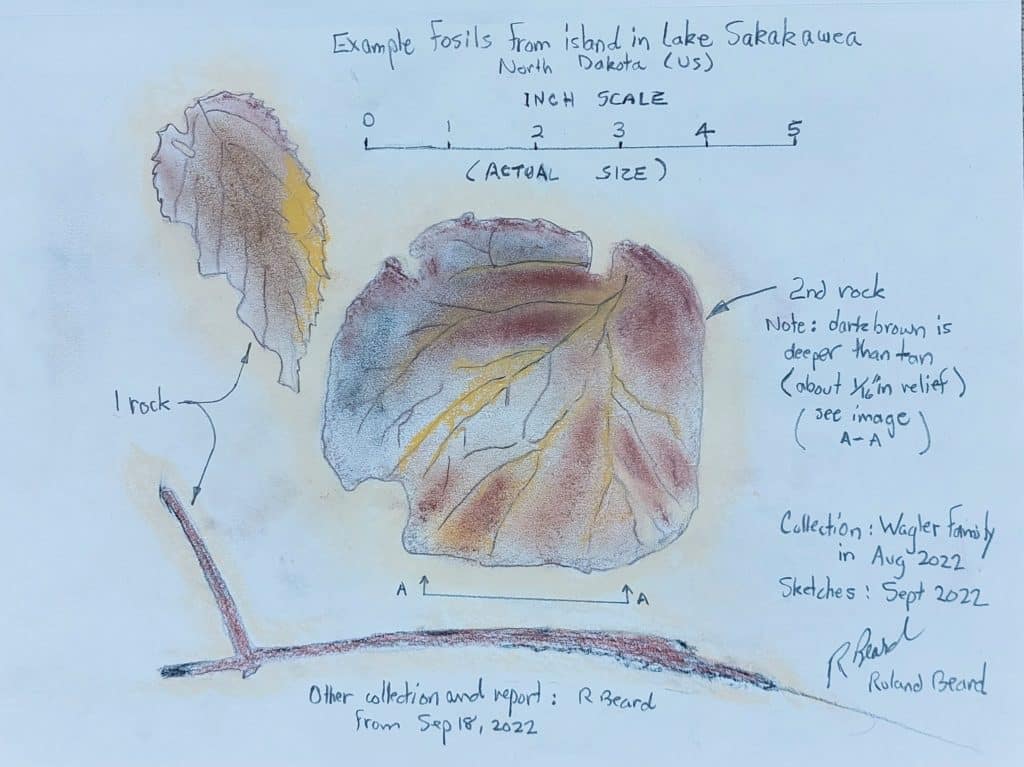 Example Fosils from island in Lake Sakakawea
North Dakota (US)
INCH SCALE
0 1 2 3 4 5
(ACTUAL SIZE)
2nd rock
Note: dark brown is
deeper than tan
(about 1/16" in relief)
(see image
A-A)
1 rock
Collection: Wagler Family
in Aug 2022
Sketches: Sept 2022
A A
R Beard
Roland Beard
Other collection and report: R Beard
From Sep 18, 2022